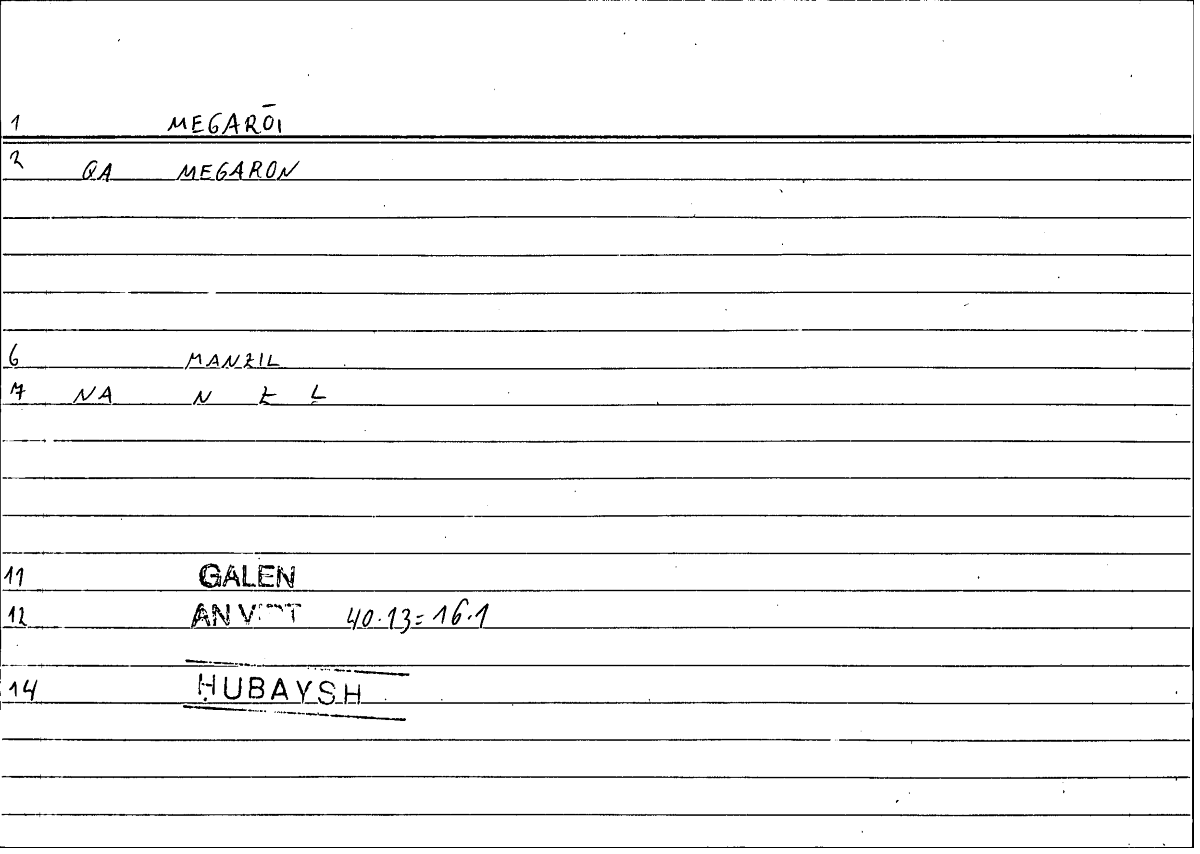 1 MEGARŌI
2 QA MEGARON
6 MANZIL
7 NA N Z L
11 GALEN
12 40.13=16.1
14 ḤUBAYSH